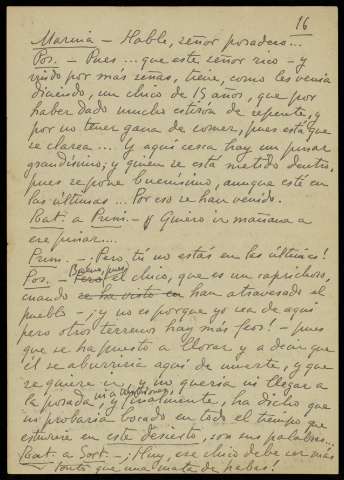 16
Marina - Hable, señor posadero...
Pos. - Pues... que este señor rico - y
viudo por más señas, tiene, como les venía
diciendo, un chico de 15 años, que por
haber dado mucho estirón de repente, y
por no tener gana de comer, pues está que
se clarea.... Y aquí cerca hay un pinar
grandísimo; y quien se está metido dentro,
pues se pone buenísimo, aunque esté en
las últimas... Por eso se han venido.
Beat. a Prim. - ¡Quiero ir mañana a
ese pinar....
Prim. - ¡Pero, tú no estás en las últimas!
Pos. - Pero Bueno, pues el chico, que es un caprichoso,
cuando se ha visto en han atravesado el
pueblo - ¡y no es porque yo sea de aquí
pero otros terrenos hay más feos! - pues
que se ha puesto a llorar y a decir que
él se aburriría aquí de muerte, y que
se quiere ir, y no quería ni llegar a
la posada ni a empujones, y finalmente, ha dicho que
no probaría bocado en todo el tiempo que
estuviera en este desierto, son sus palabras...
Beat. a Sort. - ¡Huy, ese chico debe ser más
tonto que una mata de habas!